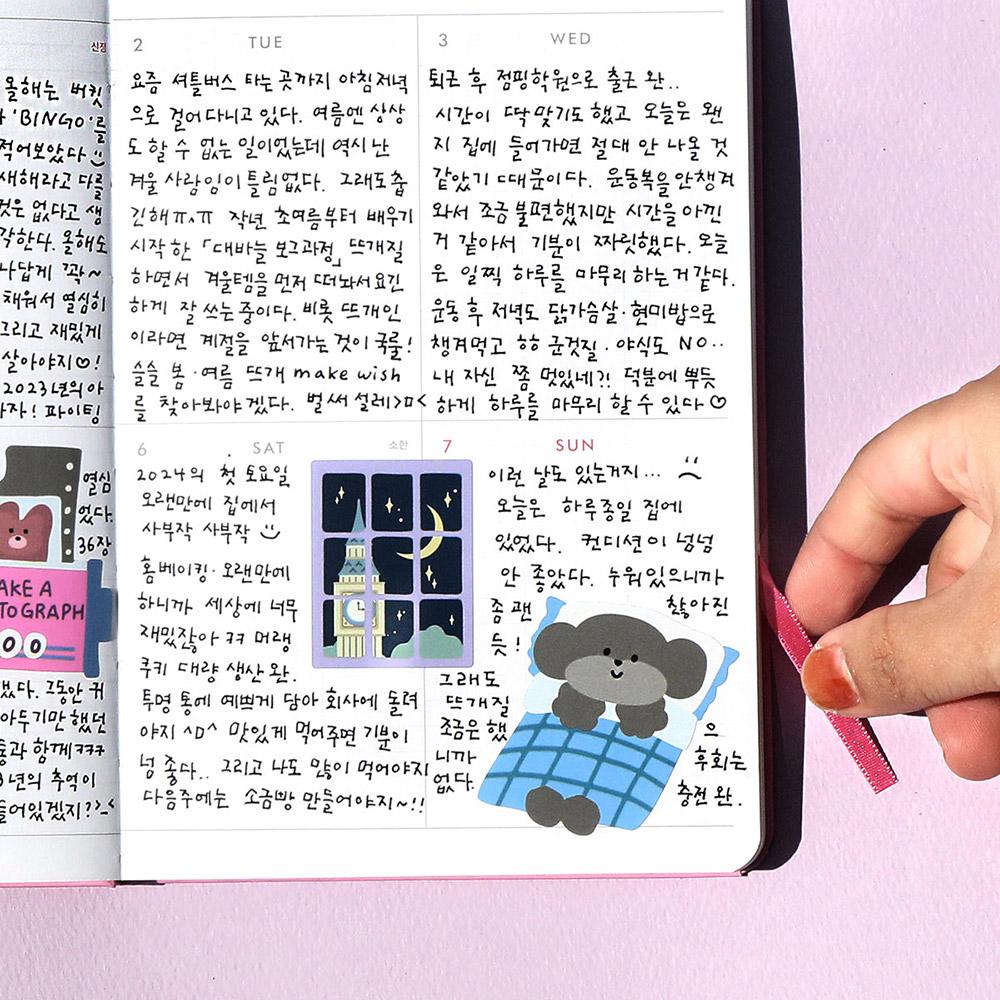 신정
올해는 버킷
'BINGO'를
적어보았다
새해라고 다를
것은 없다고 생
각한다. 올해도
나답게 꽉~
채워서 열심히
그리고 재밌게
살아야지♡!
2023년의 아
자! 파이팅
열심
었다.
36장
AKE A
TOGRAPH
했다. 그동안 커
아두기만 했던
과 함께 ㅋㅋㅋ
3년의 추억이
들어있겠지?>_<
2 TUE
요즘 셔틀버스 타는 곳까지 아침저녁
으로 걸어다니고 있다. 여름엔 상상
도 할 수 없는 일이었는데 역시 난
겨울 사람임이 틀림없다. 그래도 춥
긴해ㅠ^ㅠ 작년 초여름부터 배우기
시작한 「대바늘 보그과정」 뜨개질
하면서 겨울템을 먼저 떠놔서 요긴
하게 잘 쓰는 중이다. 비롯 뜨개인
이라면 계절을 앞서가는 것이 국룰!
슬슬 봄·여름 뜨개 make wish
를 찾아봐야겠다. 벌써 설레>ㅁ<
3 WED
퇴근 후 점핑학원으로 출근 완..
시간이 딱 맞기도 했고 오늘은 왠
지 집에 들어가면 절대 안 나올 것
같았기 때문이다. 운동복을 안챙겨
와서 조금 불편했지만 시간을 아낀
거 같아서 기분이 짜릿했다. 오늘
은 일찍 하루를 마무리 하는 거 같다.
운동 후 저녁도 닭가슴살·현미밥으로
챙겨먹고 ㅎㅎ 군것질·야식도 NO..
내 자신 쫌 멋있네?! 덕분에 뿌듯
하게 하루를 마무리 할 수 있다♡
6 SAT 소한
2024의 첫 토요일
오랜만에 집에서
사부작 사부작
홈베이킹·오랜만에
하니까 세상에 너무
재밌잖아 ㅋㅋ 머랭
쿠키 대량 생산 완.
투명 통에 예쁘게 담아 회사에 돌려
야지 ^ㅁ^ 맛있게 먹어주면 기분이
넘 좋다.. 그리고 나도 많이 먹어야지
다음주에는 소금빵 만들어야지~!!
7 SUN
이런 날도 있는거지...
오늘은 하루종일 집에
있었다. 컨디션이 넘넘
안 좋았다. 누워있으니까
좀 괜 찮아진
듯!
그래도
뜨개질
조금은 했 으
니까 후회는
없다. 충전 완.